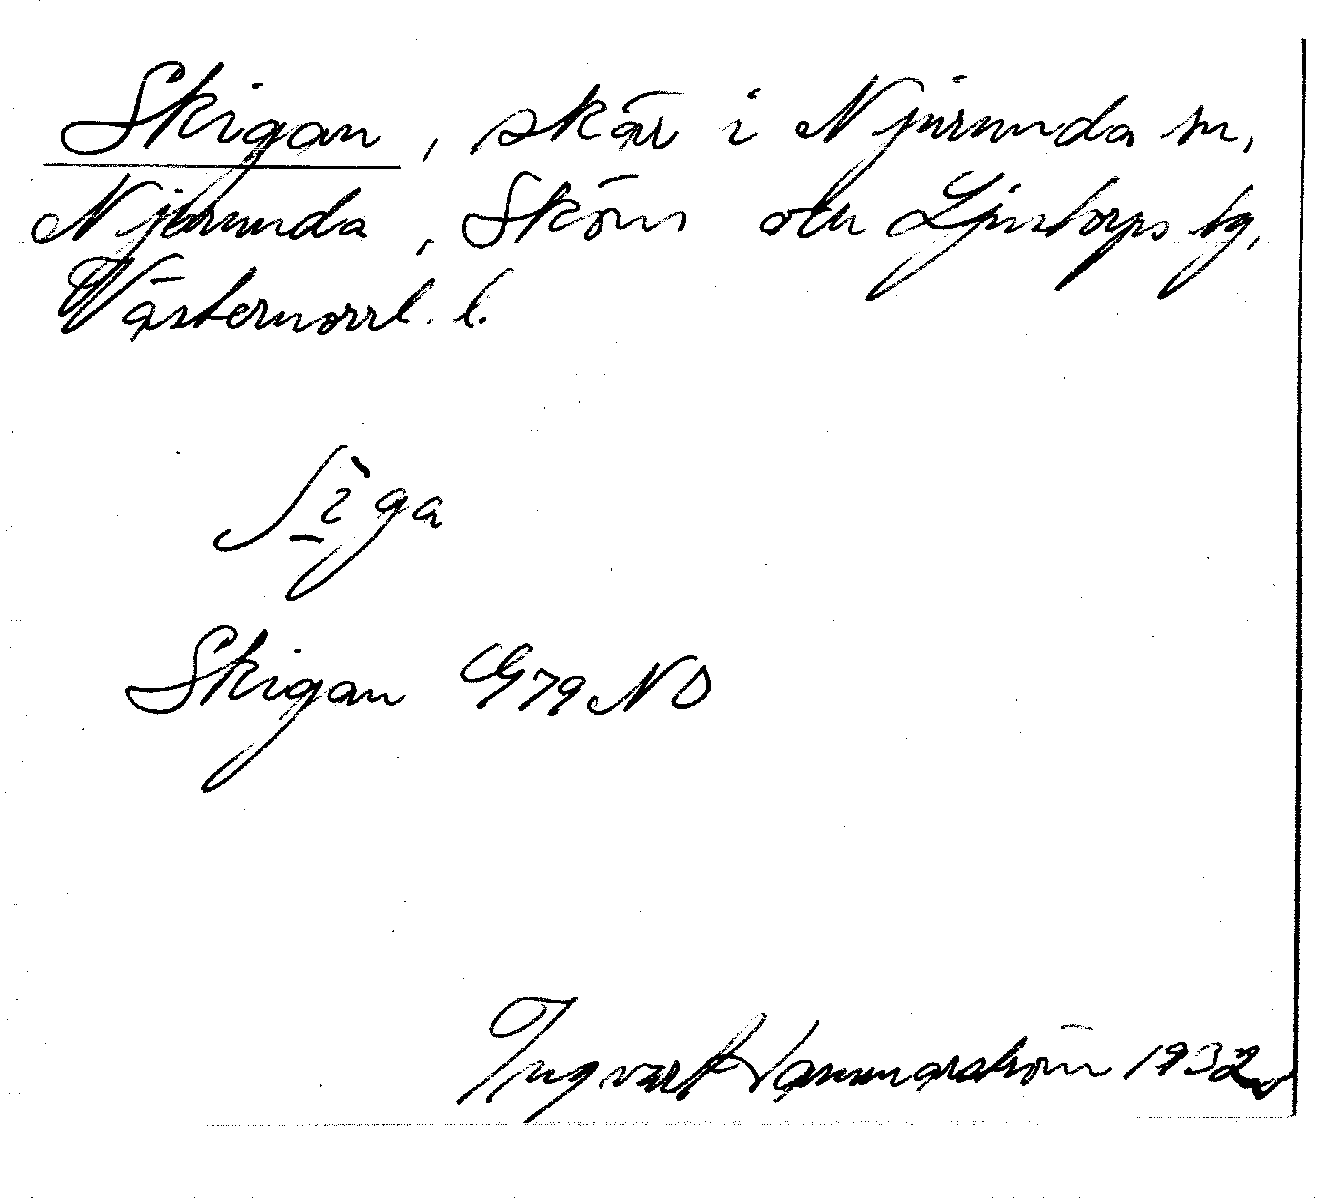 Skigan, skär i Njurunda sn,
Njurunda, Sköns och Ljustorps tg,
Västernorrl. l.
Skigan G79 NO
Ingvar Hammarström 1932